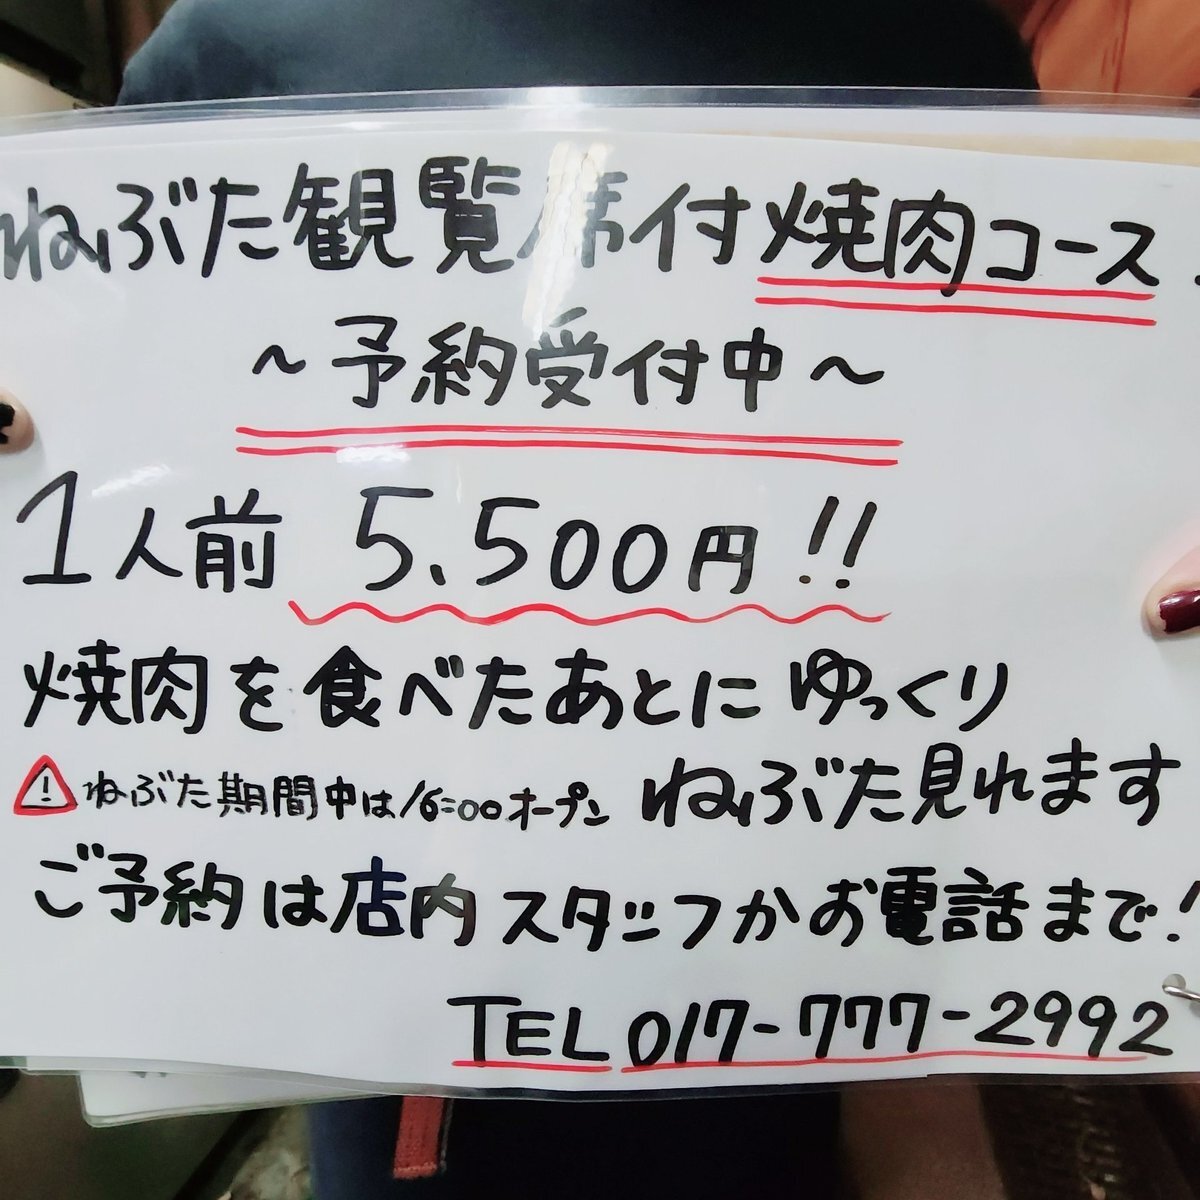 ねぶた観覧席付焼肉コース!
~予約受付中~
1人前 5,500円!!
焼肉を食べたあとにゆっくり
ねぶた見れます
⚠ねぶた期間中は16:00オープン
ご予約は店内スタッフかお電話まで!
TEL 017-777-2992